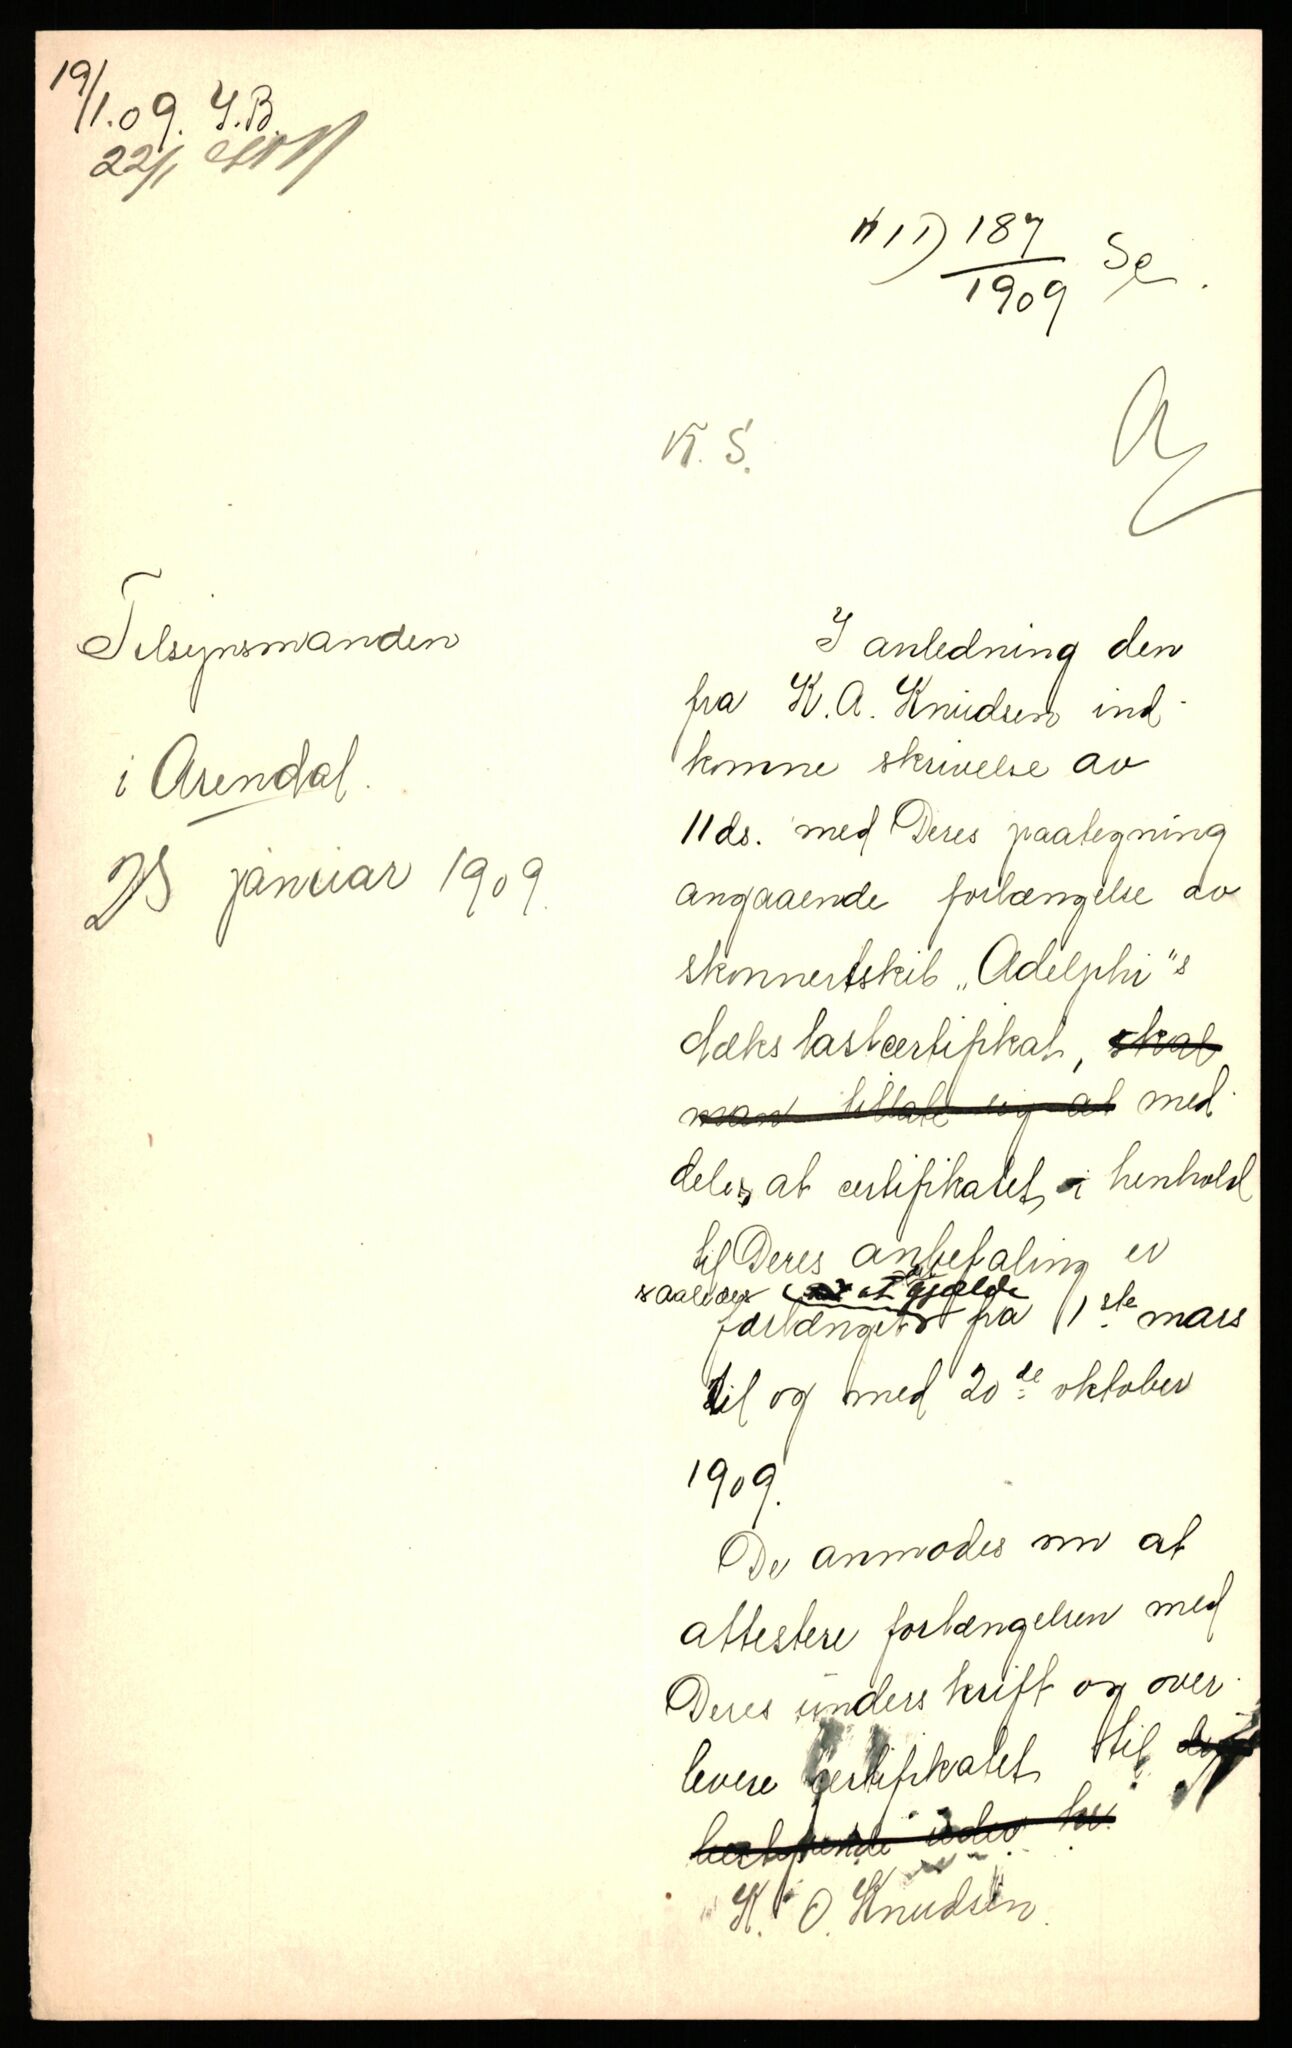 19/1.09. Y.B.
22/1
187/1909 Se.
K. S.
Tilsynsmanden
i Arendal.
23 januar 1909.
I anledning den
fra K. A. Knudsen ind-
komne skrivelse av
11 ds. med Deres paategning
angaaende forlængelse av
skonnertskib „Adelphi"s
dækslastcertifikat, skal
man tillate sig at med-
deles, at certifikatet i henhold
til Deres anbefaling er
saaledes at gjælde
forlænget fra 1ste mars
til og med 20de oktober
1909.
De anmodes om at
attestere forlængelsen med
Deres underskrift og over-
levere certifikatet til
K. O. Knudsen.